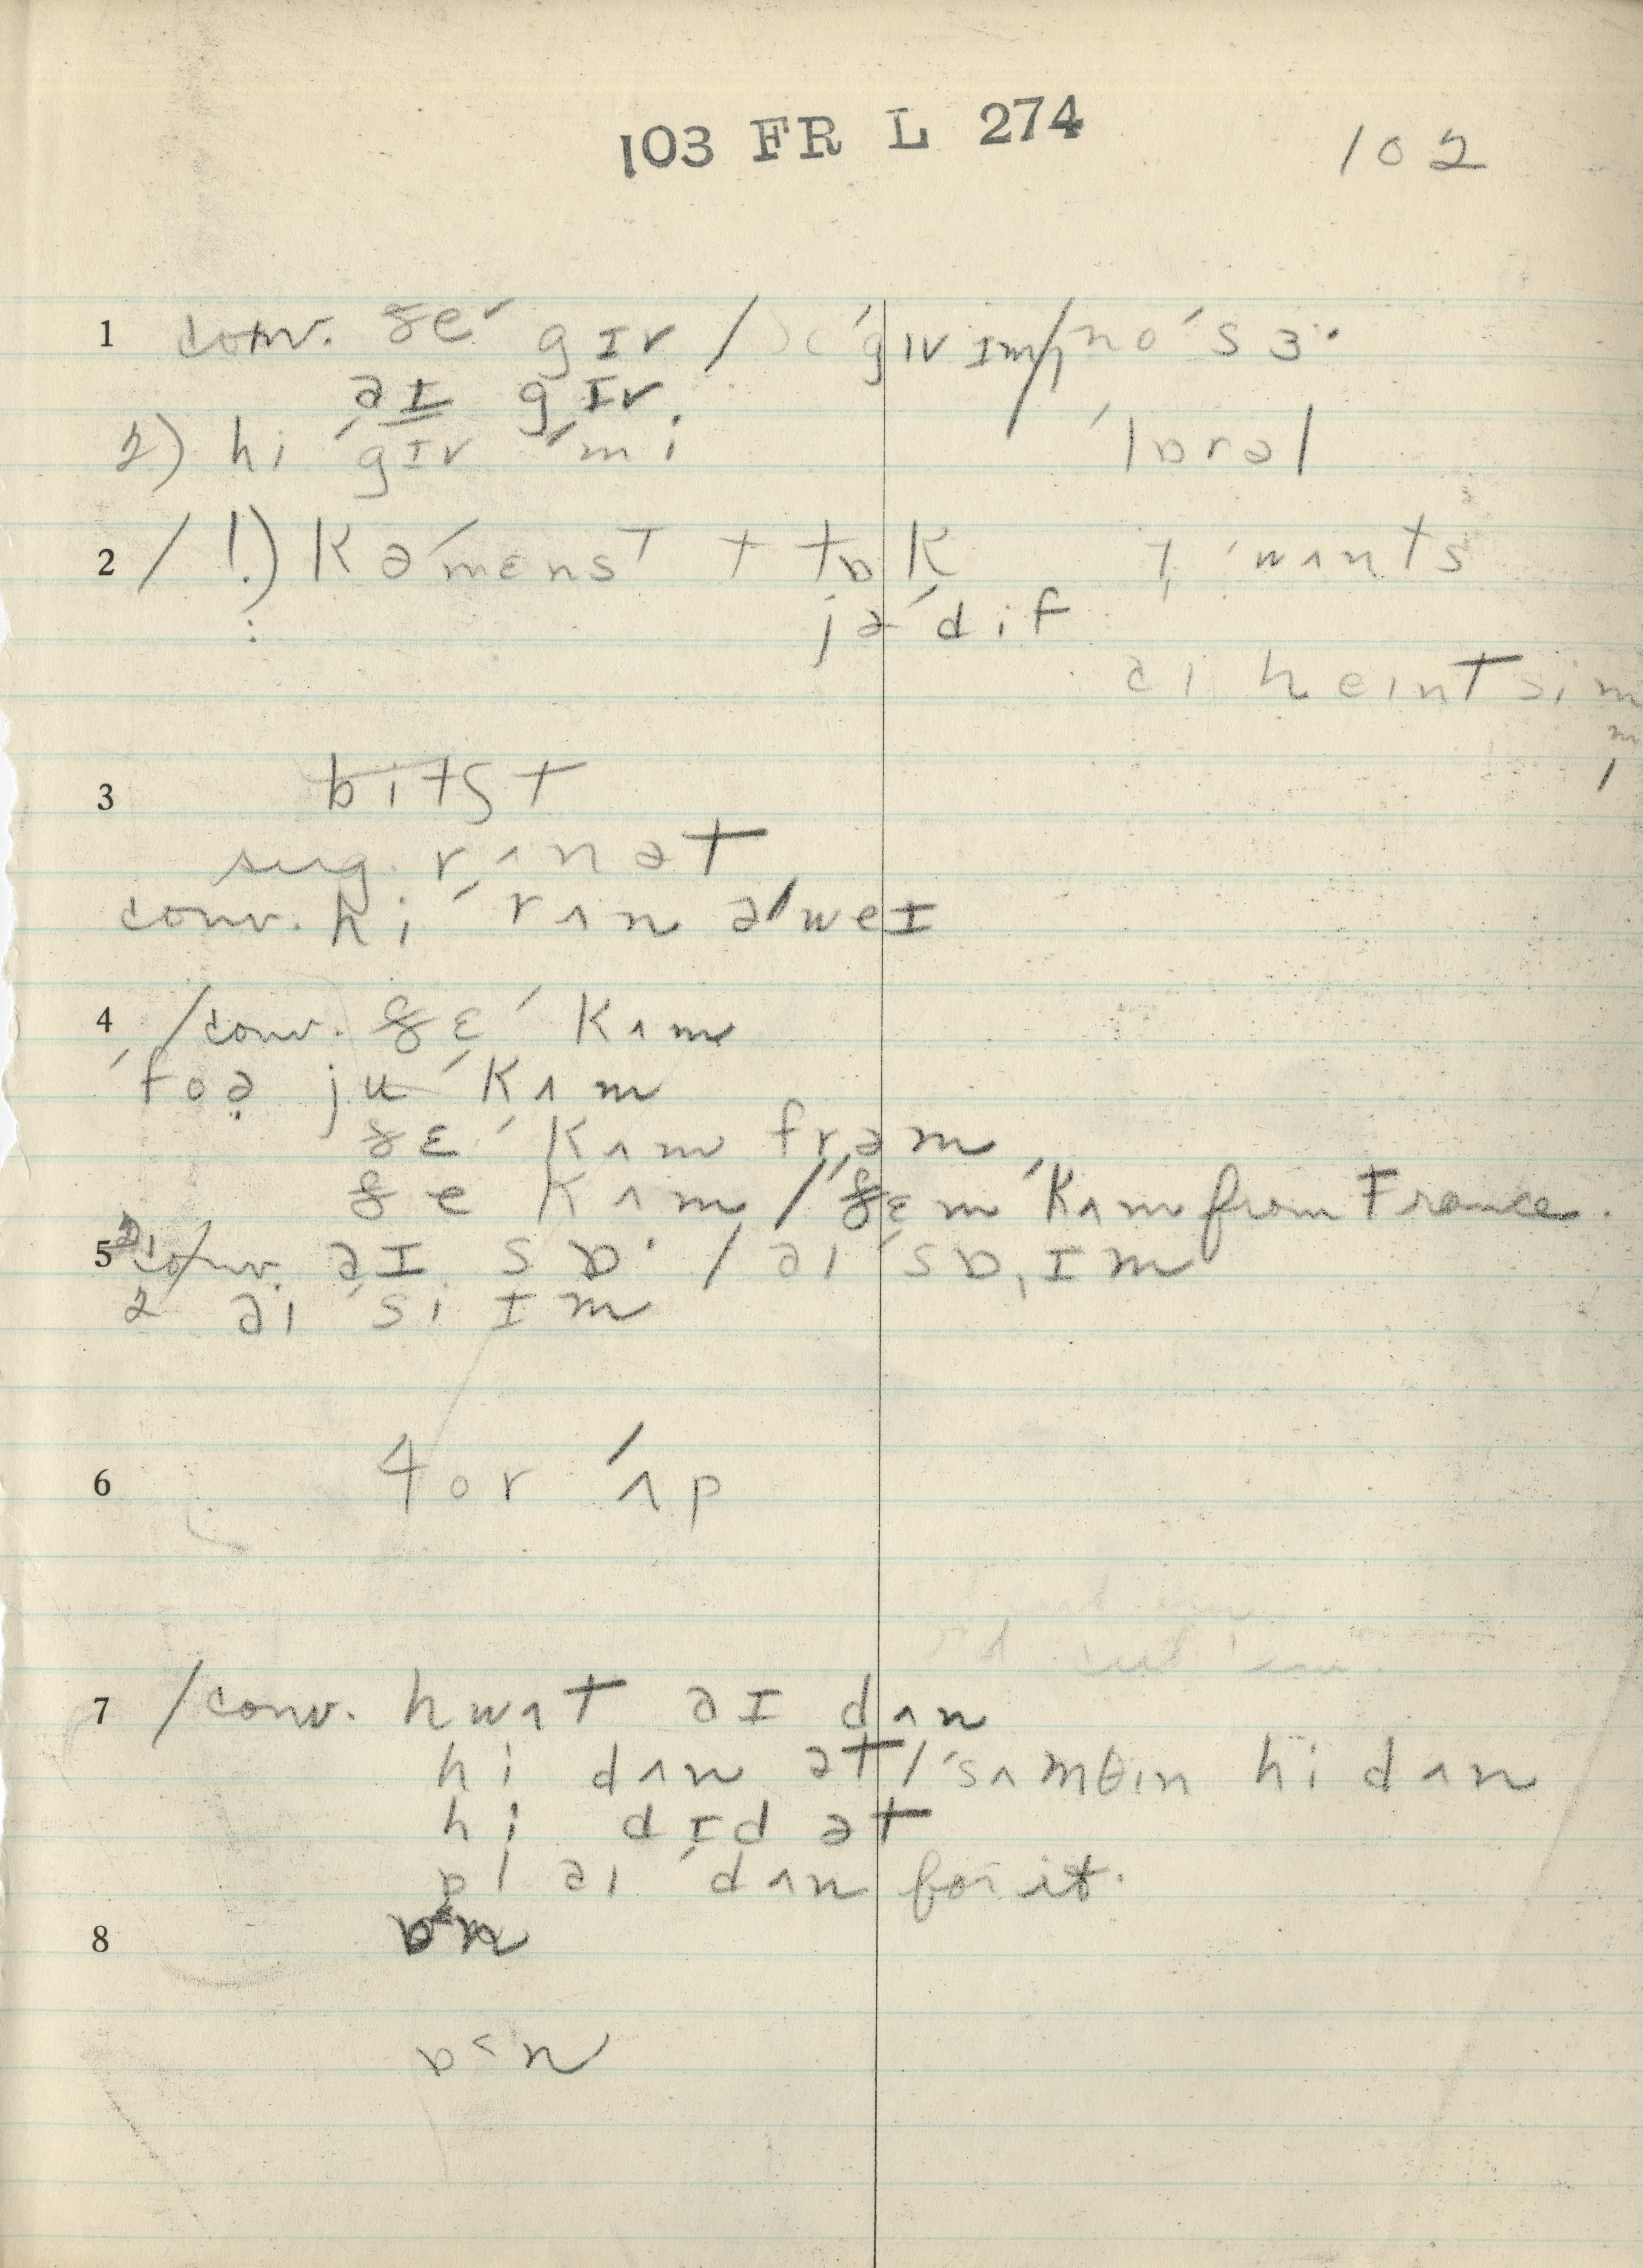 103 FR L 274 102
1 conv. ðe ˈgɪv / ˈgɪv ɪm / noˈsɜ·
əɪ gɪv
2) hi ˈgɪv ˈmi ˈlɒrəl
2 / !) kəˈmenst t tɒk ˈwʌnts
jəˈdif
əi heint sim
3 bitʃt
sug. rʌn ət
conv. hi ˈrʌn əˈweɪ
4 /conv. ðɛ ˈkʌm
ˈfoə ju ˈkʌm
ðɛ ˈkʌm frəm
ðe kʌm / ðɛm ˈkʌm from France.
5 conv. əɪ sɒ· / əi ˈsɒ, ɪm
2 əi ˈsi ɪm
6 4 or ˈʌp
7 /conv. hwʌt əɪ dʌn
hi dʌn ət / ˈsʌmθin hi dʌn
hi dɪd ət
əi ˈdʌn for it.
8
b<n